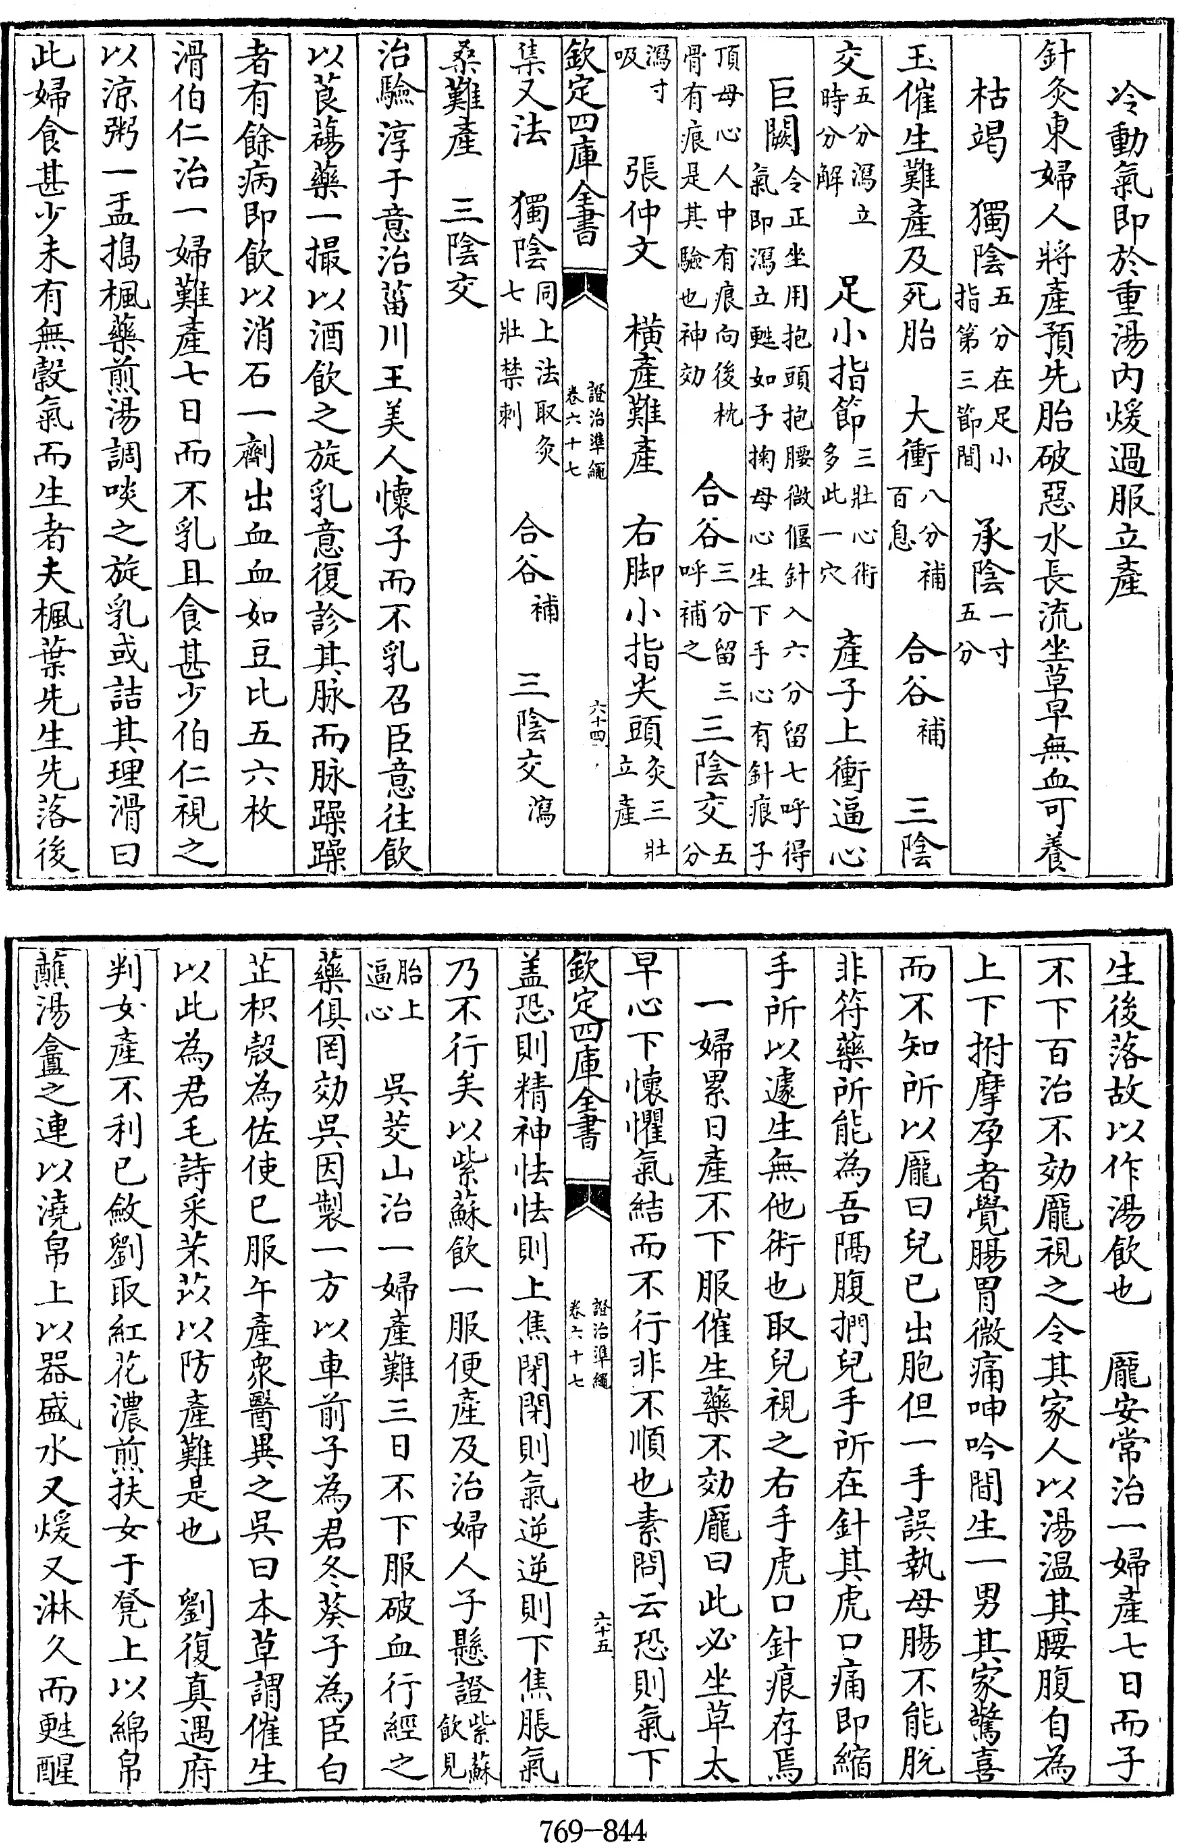 冷動氣即於重湯内煖過服立產
針灸東婦人將產預先胎破惡水長流坐草早無血可養
枯竭 獨陰五分在足小指第三節間 承陰一寸五分
玉催生難產及死胎 大衝八分補百息 合谷補 三陰
交五分瀉立時分解 足小指節三壯心術多此一穴 產子上衝逼心
巨闕令正坐用抱頭抱腰微偃針入六分留七呼得氣即瀉立甦如子掬母心生下手心有針痕子
頂母心人中有痕向後枕骨有痕是其驗也神効 合谷三分留三呼補之 三陰交五分
瀉寸吸 張仲文 橫產難產 右脚小指尖頭灸三壯立產
欽定四庫全書 證治準繩 卷六十七 六十四
集又法 獨陰同上法取灸七壯禁刺 合谷補 三陰交瀉
桑難產 三陰交
治驗淳于意治菑川王美人懷子而不乳召臣意往飲
以莨蕩藥一撮以酒飲之旋乳意復診其脉而脉躁躁
者有餘病即飲以消石一劑出血血如豆比五六枚
滑伯仁治一婦難產七日而不乳且食甚少伯仁視之
以涼粥一盂搗楓藥煎湯調啖之旋乳或詰其理滑曰
此婦食甚少未有無穀氣而生者夫楓葉先生先落後
生後落故以作湯飲也 龐安常治一婦產七日而子
不下百治不効龐視之令其家人以湯溫其腰腹自為
上下拊摩孕者覺腸胃微痛呻吟間生一男其家驚喜
而不知所以龐曰兒已出胞但一手誤執母腸不能脫
非符藥所能為吾隔腹捫兒手所在針其虎口痛即縮
手所以遽生無他術也取兒視之右手虎口針痕存焉
一婦累日產不下服催生藥不効龐曰此必坐草太
早心下懷懼氣結而不行非不順也素問云恐則氣下
欽定四庫全書 證治準繩 卷六十七 六十五
盖恐則精神怯怯則上焦閉閉則氣逆逆則下焦脹氣
乃不行矣以紫蘇飲一服便產及治婦人子懸證紫蘇飲見
胎上逼心 吳茭山治一婦產難三日不下服破血行經之
藥俱罔効吳因製一方以車前子為君冬葵子為臣白
芷枳殼為佐使已服午產衆醫異之吳曰本草謂催生
以此為君毛詩采芣苡以防產難是也 劉復真遇府
判女產不利已斂劉取紅花濃煎扶女于凳上以綿帛
蘸湯盦之連以澆帛上以器盛水又煖又淋久而甦醒
769-844